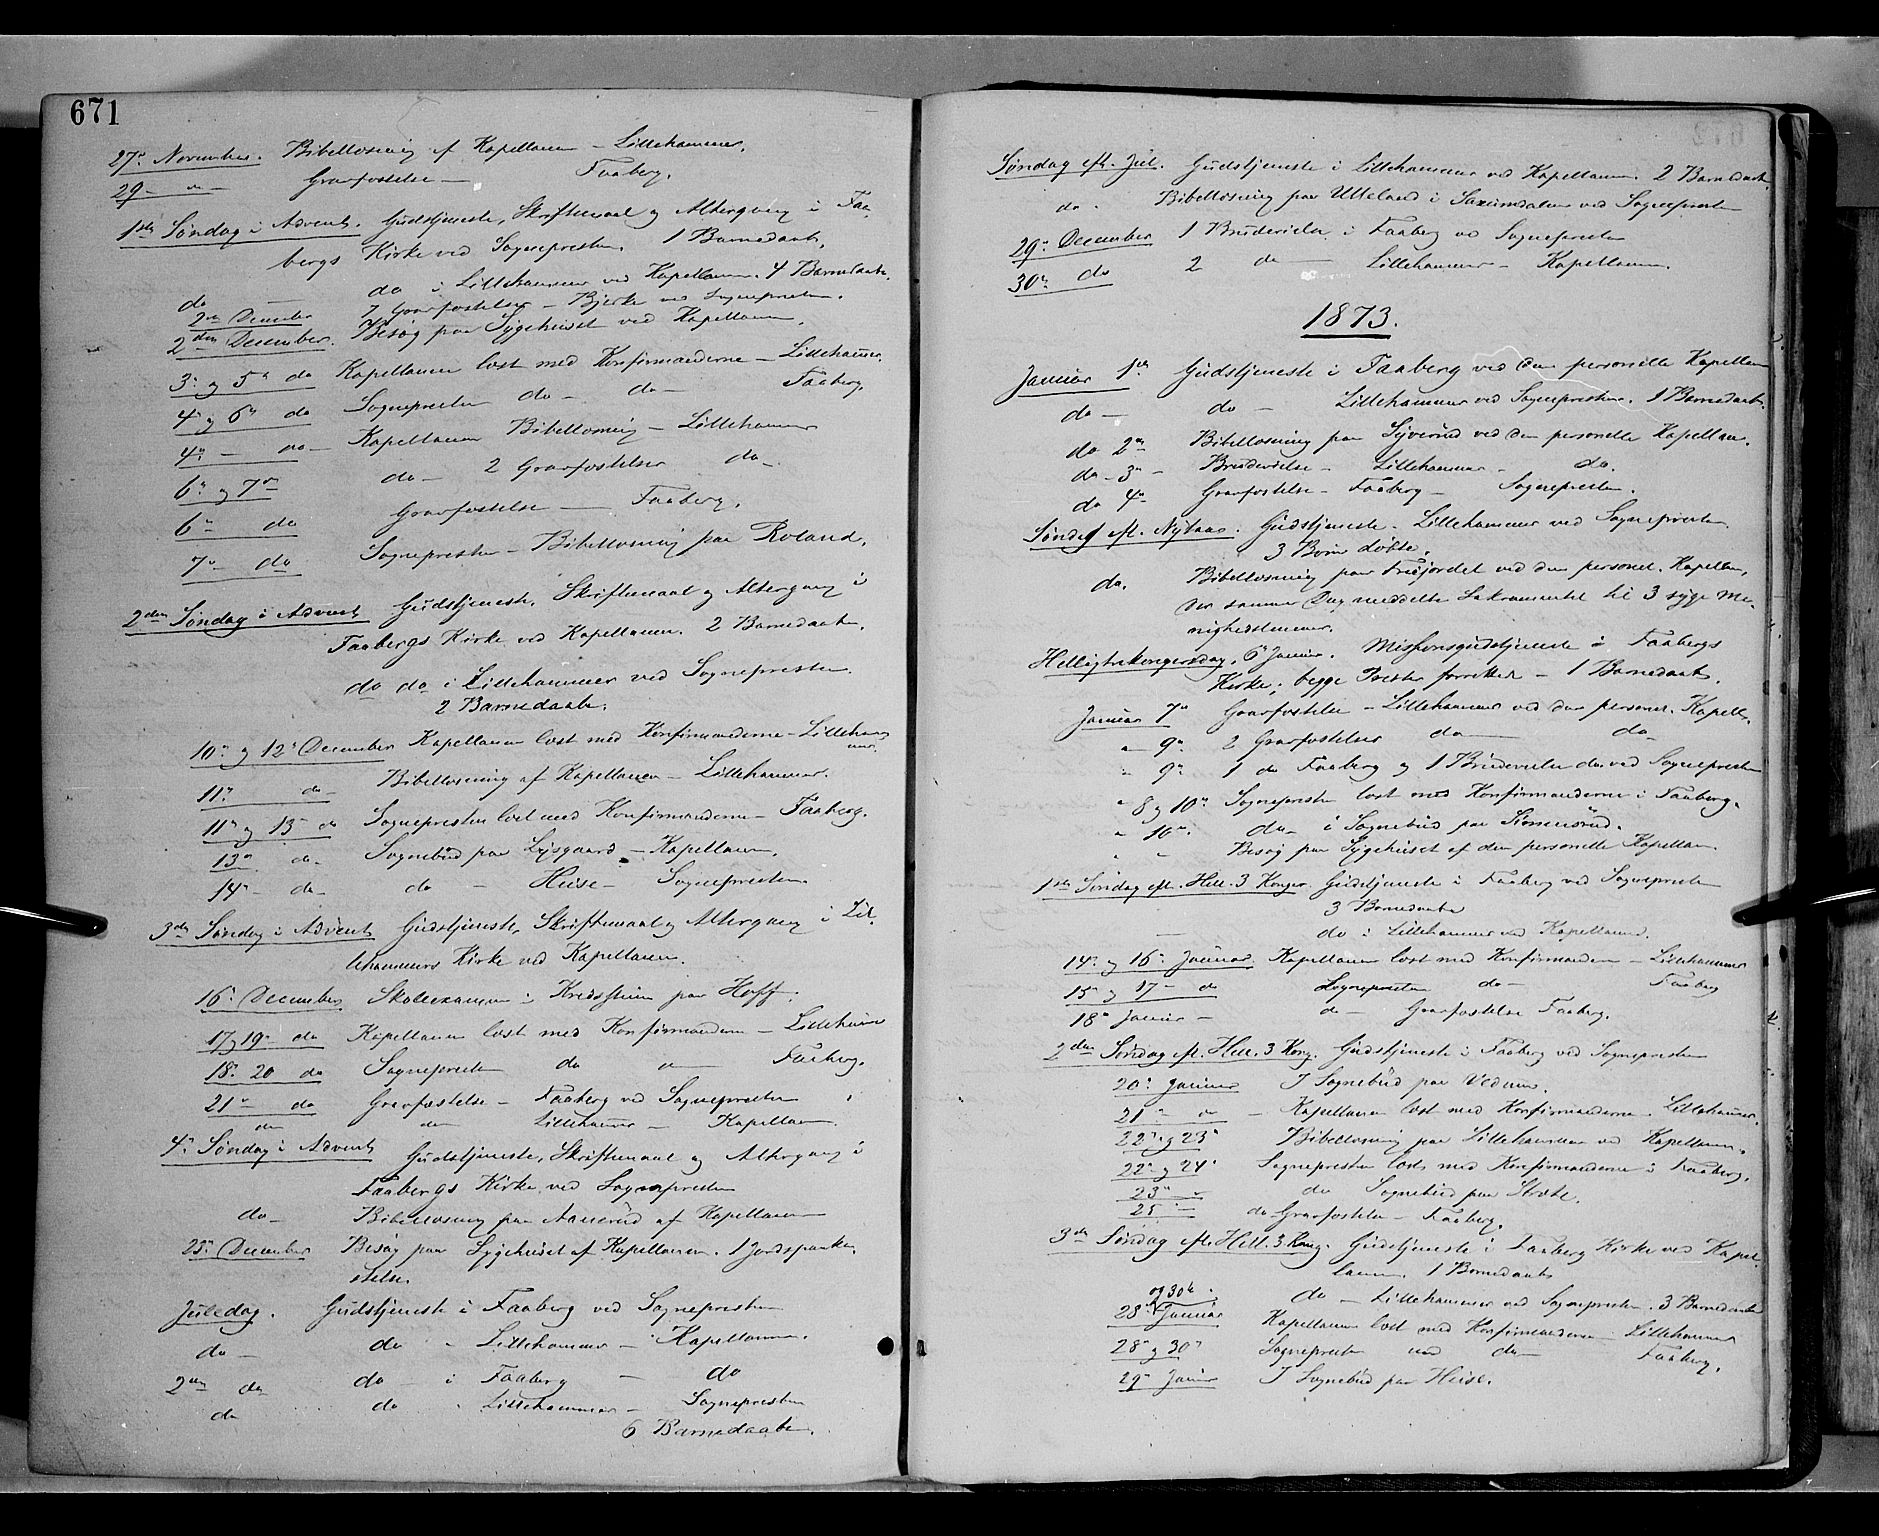 671
27de November. Bibellæsning af Kapellanen – Lillehammer.
29 – " – Gravfæstelse – Faaberg.
1ste Søndag i Advent. Gudstjeneste, Skriftemaal og Altergang i Faa-
bergs Kirke ved Sognepresten. 1 Barnedaab.
do – do i Lillehammer ved Kapellanen. 4 Barnedaabe.
2den December 7 Gravfæstelser – Bjerke ved Sognepresten.
2den December. Besøg paa Sygehuset ved Kapellanen.
3 og 5te do Kapellanen læst med Konfirmanderne – Lillehammer.
4 og 6te do Sognepresten do – do – Faaberg.
4de – do – Kapellanen Bibellæsning – Lillehammer
6te og 7de do – 2 Gravfæstelser do –
6te do Gravfæstelse – Faaberg.
7de do Sognepresten – Bibellæsning paa Roland.
2den Søndag i Advent Gudstjeneste, Skriftemaal og Altergang i
Faabergs Kirke ved Kapellanen. 2 Barnedaabe.
do do i Lillehammer ved Sognepresten.
2 Barnedaabe.
10de og 12te December Kapellanen læst med Konfirmanderne – Lilleham-
mer.
11te do – Bibellæsning af Kapellanen – Lillehammer.
11te og 13de do Sognepresten læst med Konfirmanderne – Faaberg.
13de do Sognebud paa Lysgaard – Kapellanen.
14de – do – do – Heise – Sognepresten.
3de Søndag i Advent Gudstjeneste, Skriftemaal og Altergang i Lil-
lehammers Kirke ved Kapellanen.
16de December Skoleexamen i Kredsskien paa Hoff.
17 og 19de do Kapellanen læst med Konfirmanderne – Lillehammer
18 20 do Sognepresten do " Faaberg.
21de do Gravfæstelse – Faaberg ved Sognepresten
do do Lillehammer – Kapellanen.
4de Søndag i Advent Gudstjeneste, Skriftemaal og Altergang i
Faabergs Kirke ved Sognepresten
do – Bibellæsning paa Aanerud af Kapellanen
23de December Besøg paa Sygehuset af Kapellanen. 1 Jordspaaka-
stelse.
Juledag. Gudstjeneste i Faaberg ved Sognepresten
do – do " Lillehammer – Kapellanen.
2den do do – i Faaberg – do
do do " Lillehammer – Sognepresten
6 Barnedaabe.
Søndag eft. Jul. Gudstjeneste i Lillehammer ved Kapellanen. 2 Barnedaab.
do. Bibellæsning paa Ulleland i Saxumdalen ved Sognepresten
29de December 1 Brudevielse i Faaberg ved Sognepresten
30te do 2 do – Lillehammer – Kapellanen.
1873.
Januar 1ste Gudstjeneste i Faaberg ved den personelle Kapellan
do – do – Lillehammer ved Sognepresten. 1 Barnedaab.
do 2den Bibellæsning paa Syverud ved den personelle Kapellan.
do – 3de – Brudevielse – Lillehammer – do.
do 4de Gravfæstelse – Faaberg – Sognepresten.
Søndag eft. Nytaar. Gudstjeneste – Lillehammer ved Sognepresten.
3 Børn døbte.
do. Bibellæsning paa Trisjordet ved den personel. Kapellan,
der samme Dag meddelte Sakramentet til 3 syge Me-
nighedslemmer.
Helligtrekongersdag, 6te Januar. Missionsgudstjeneste i Faabergs
Kirke; begge Prester forrettede – 1 Barnedaab.
Januar 7de Gravfæstelse – Lillehammer ved den personel. Kapell.
" 9de 2 Gravfæstelser do – do –
" 9de 1 do Faaberg og 1 Brudevielse do. ved Sognepresten
" 8 og 10de Sognepresten læst med Konfirmanderne i Faaberg.
" 10de do – i Sognebud paa
" " Besøg paa Sygehuset af den personelle Kapellan
1ste Søndag eft. Hell. 3 Konger Gudstjeneste i Faaberg ved Sognepresten
3 Barnedaabe
– do i Lillehammer ved Kapellanen.
14de og 16de Januar Kapellanen læst med Konfirmanderne – Lillehammer
15de og 17de – do Sognepresten do – Faaberg
18de Januar – do – Gravfæstelse Faaberg.
2den Søndag eft. Hell. 3 Kong. Gudstjeneste i Faaberg ved Sognepresten
20de Januar I Sognebud paa Vedum.
21de – " – Kapellanen læst med Konfirmanderne. Lillehammer.
22de og 23de Bibellæsning paa Lillehammer ved Kapellanen.
22de og 24de Sognepresten læst med Konfirmanderne i Faaberg.
23de " do Sognebud paa
25 " – do Gravfæstelse – Faaberg.
3de Søndag eft. Hell. 3 Kong. Gudstjeneste i Faaberg Kirke ved Kapel-
lanen. 1 Barnedaab
do – Lillehammer ved Sognepresten. 3 Barnedaabe
og 30te.
28de Januar Kapellanen læst med Konfirmanderne Lillehammer
28de og 30de Sognepresten med do – Faaberg.
29de Januar I Sognebud paa Heise.